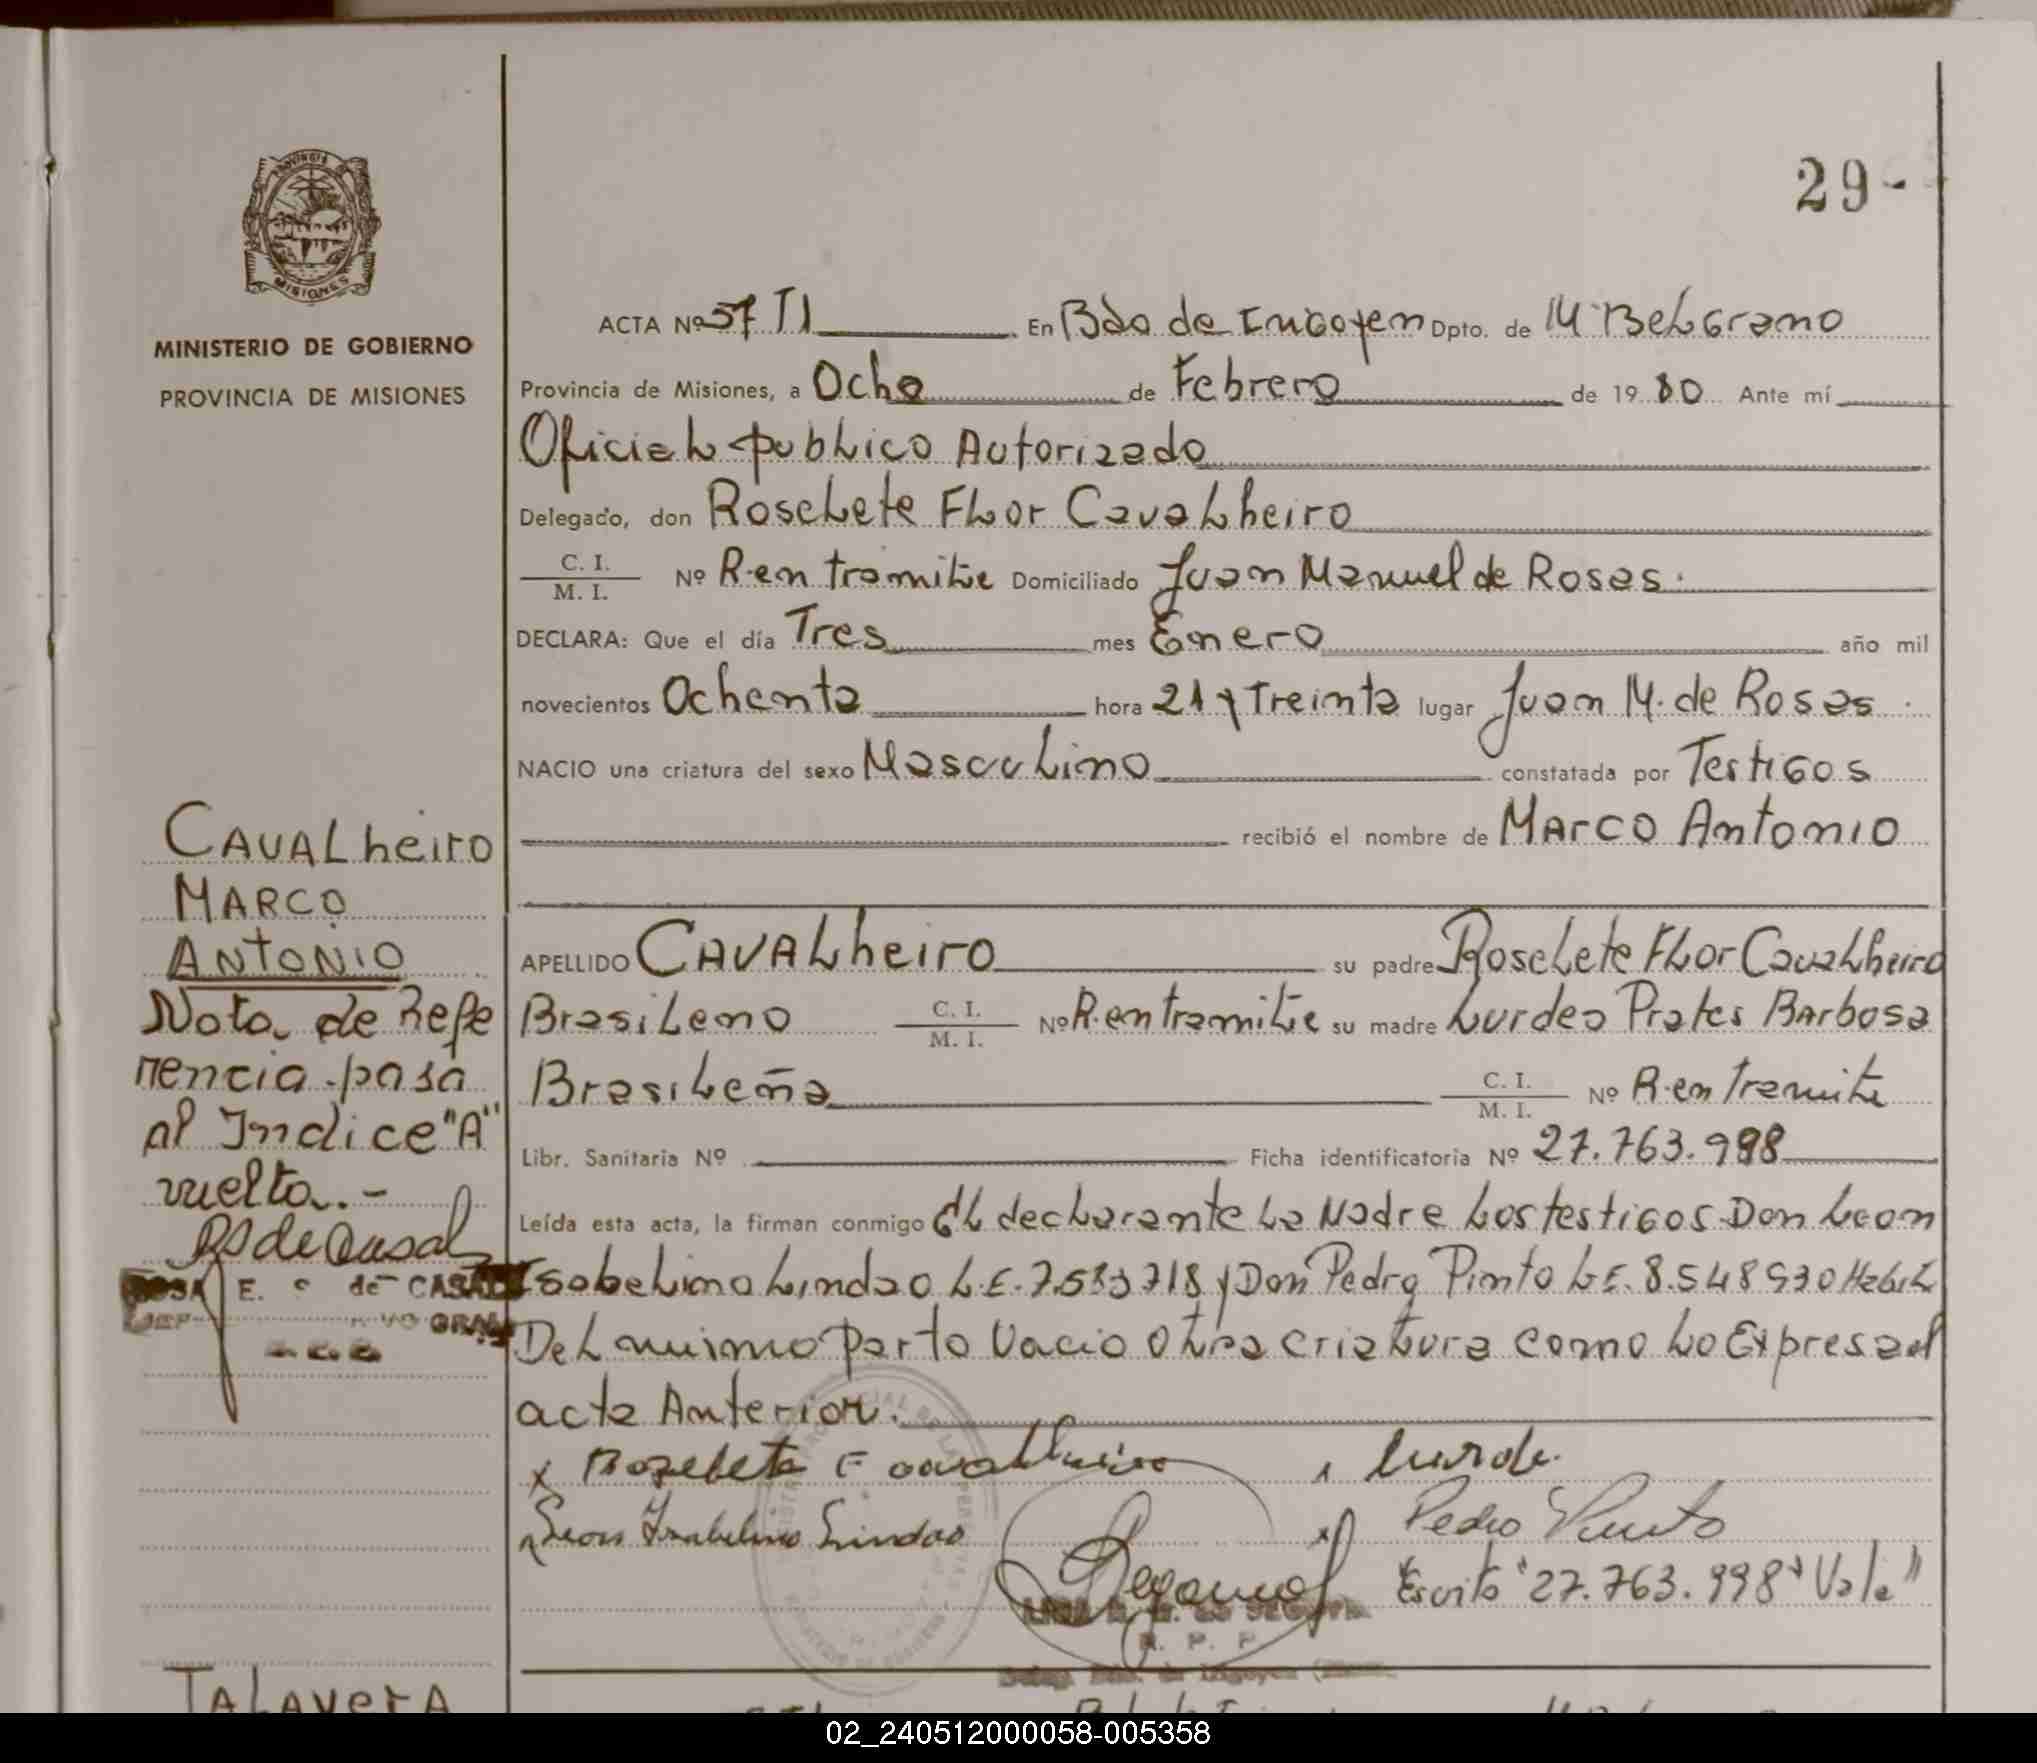 29-
PROVINCIA
MISIONES
MINISTERIO DE GOBIERNO
PROVINCIA DE MISIONES
ACTA Nº 57 TI En Bdo de Irigoyen Dpto. de M Belgrano
Provincia de Misiones, a Ocho de Febrero de 19 80 Ante mí
Oficial publico Autorizado
Delegado, don Roselete Flor Cavalheiro
C. I.
M. I. Nº R. en tramite Domiciliado Juan Manuel de Rosas.
DECLARA: Que el día Tres mes Enero año mil
novecientos Ochenta hora 21 y Treinta lugar Juan M. de Rosas.
NACIO una criatura del sexo Masculino constatada por Testigos
recibió el nombre de Marco Antonio
CAVALheiro
MARCO
ANTONIO
Nota de Refe
rencia pasa
al Indice "A"
vuelta.-
E. de CASAL
APELLIDO CAVALheiro su padre Roselete Flor Cavalheiro
Brasileno C. I.
M. I. Nº R. en tramite su madre Lurdes Prates Barbosa
Brasileña C. I.
M. I. Nº R. en Tramite
Libr. Sanitaria Nº Ficha identificatoria Nº 27.763.998
Leída esta acta, la firman conmigo El declarante La Madre Los testigos Don Leon
Isabelino Lindao L.E. 7.533718 y Don Pedro Pinto L.E. 8.548930 Habil
Del mismo Parto Nacio Otra criatura como Lo Expresa el
acta Anterior.
x Rozelete F Cavalheiro Lurde
Leon Izabelino Lindao x Pedro Pinto
Escrito "27.763.998" Vale"
R. P. P.
TALAVErA
02_240512000058-005358